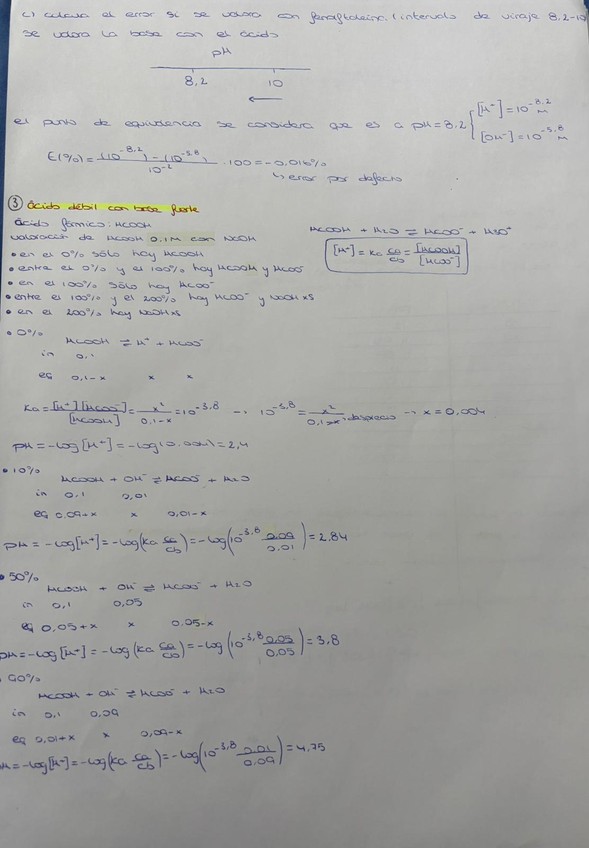 c) calcula el error si se valora con fenolftaleína. (intervalo de viraje 8,2-10
se valora la base con el ácido
pH
8,2 10
el punto de equivalencia se considera que es a pH=8,2 { [H⁺]=10^-8,2 M
[OH⁻]=10^-5,8 M
E(%)= (10^-8,2) - (10^-5,8) / 10^-2 · 100 = -0,016%
↳ error por defecto
③ Ácido débil con base fuerte
Ácido fórmico: HCOOH
valoración de HCOOH 0,1M con NaOH
HCOOH + H2O ⇌ HCOO⁻ + H3O⁺
• en el 0% sólo hay HCOOH
[H⁺] = Ka Ca/Cb = [HCOOH]/[HCOO⁻]
• entre el 0% y el 100% hay HCOOH y HCOO⁻
• en el 100% sólo hay HCOO⁻
• entre el 100% y el 200% hay HCOO⁻ y NaOH xs
• en el 200% hay NaOH xs
• 0%
HCOOH ⇌ H⁺ + HCOO⁻
in 0,1
eq 0,1-x x x
Ka = [H⁺][HCOO⁻]/[HCOOH] = x²/0,1-x = 10^-3,8 → 10^-3,8 = x²/0,1-x desprecio → x = 0,004
pH = -log[H⁺] = -log(0,004) = 2,4
• 10%
HCOOH + OH⁻ ⇌ HCOO⁻ + H2O
in 0,1 0,01
eq 0,09+x x 0,01-x
pH = -log[H⁺] = -log(Ka Ca/Cb) = -log(10^-3,8 0,09/0,01) = 2,84
• 50%
HCOOH + OH⁻ ⇌ HCOO⁻ + H2O
in 0,1 0,05
eq 0,05+x x 0,05-x
pH = -log[H⁺] = -log(Ka Ca/Cb) = -log(10^-3,8 0,05/0,05) = 3,8
90%
HCOOH + OH⁻ ⇌ HCOO⁻ + H2O
in 0,1 0,09
eq 0,01+x x 0,09-x
H = -log[H⁺] = -log(Ka Ca/Cb) = -log(10^-3,8 0,01/0,09) = 4,75